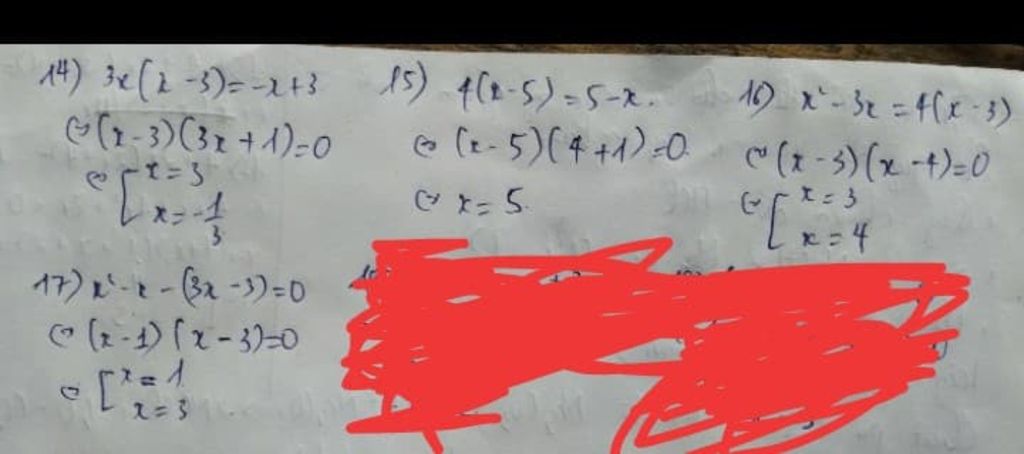 14) 3x(x-3)=-x+3
⇔(x-3)(3x+1)=0
⇔[x=3
x=-1/3
15) 4(x-5)=5-x.
⇔(x-5)(4+1)=0
⇔x=5.
16) x²-3x=4(x-3)
⇔(x-3)(x-4)=0
⇔[x=3
x=4
17) x²-x-(3x-3)=0
⇔(x-1)(x-3)=0
⇔[x=1
x=3